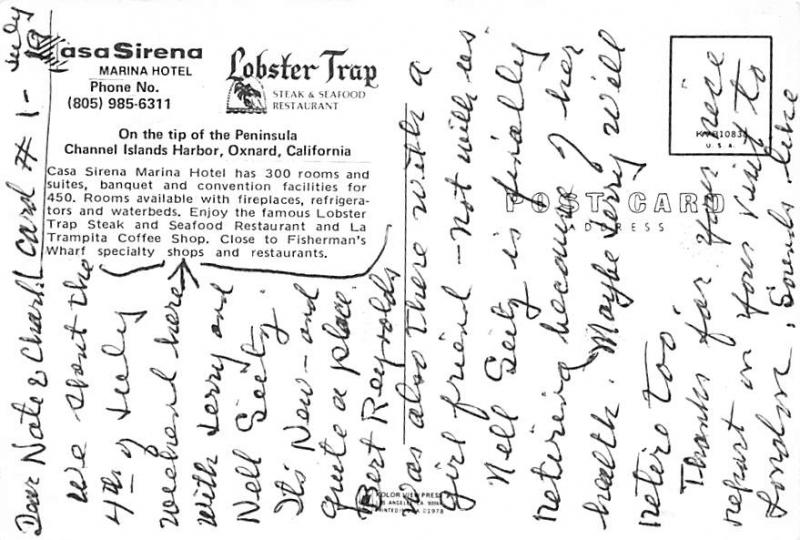 Casa Sirena
MARINA HOTEL
Phone No.
(805) 985-6311
Lobster Trap
STEAK & SEAFOOD
RESTAURANT
On the tip of the Peninsula
Channel Islands Harbor, Oxnard, California
Casa Sirena Marina Hotel has 300 rooms and
suites, banquet and convention facilities for
450. Rooms available with fireplaces, refrigera-
tors and waterbeds. Enjoy the famous Lobster
Trap Steak and Seafood Restaurant and La
Trampita Coffee Shop. Close to Fisherman's
Wharf specialty shops and restaurants.
POST CARD
ADDRESS
U.S.A.
KOLOR VIEW PRESS
Card # 1 - July
Dear Nate &
We spent the
4th of July
weekend here
with Jerry and
Nell Seitz.
It's New - and
quite a place.
Bert Reynolds
was also there with a
girl friend - Not with us
Nell Seitz is finally
retiring because of her
health. Maybe Jerry will
retire too.
Thanks for your nice
report on your visit to
London. Sounds like